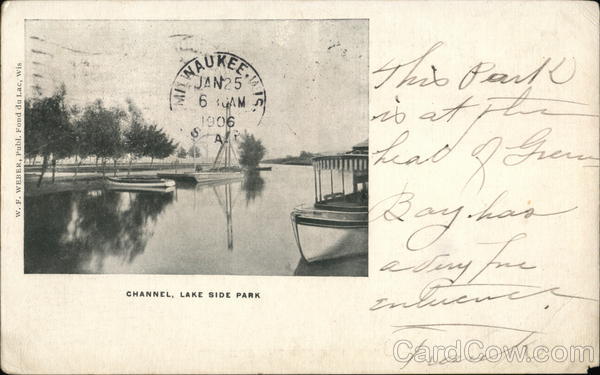 W. F. WEBER, Publ. Fond du Lac, Wis
MILWAUKEE, WIS.
JAN 25
6 30 AM
1906
S A
CHANNEL, LAKE SIDE PARK
This Park
is at the
head of Green
Bay has
a very fine
entrance
CardCow.com